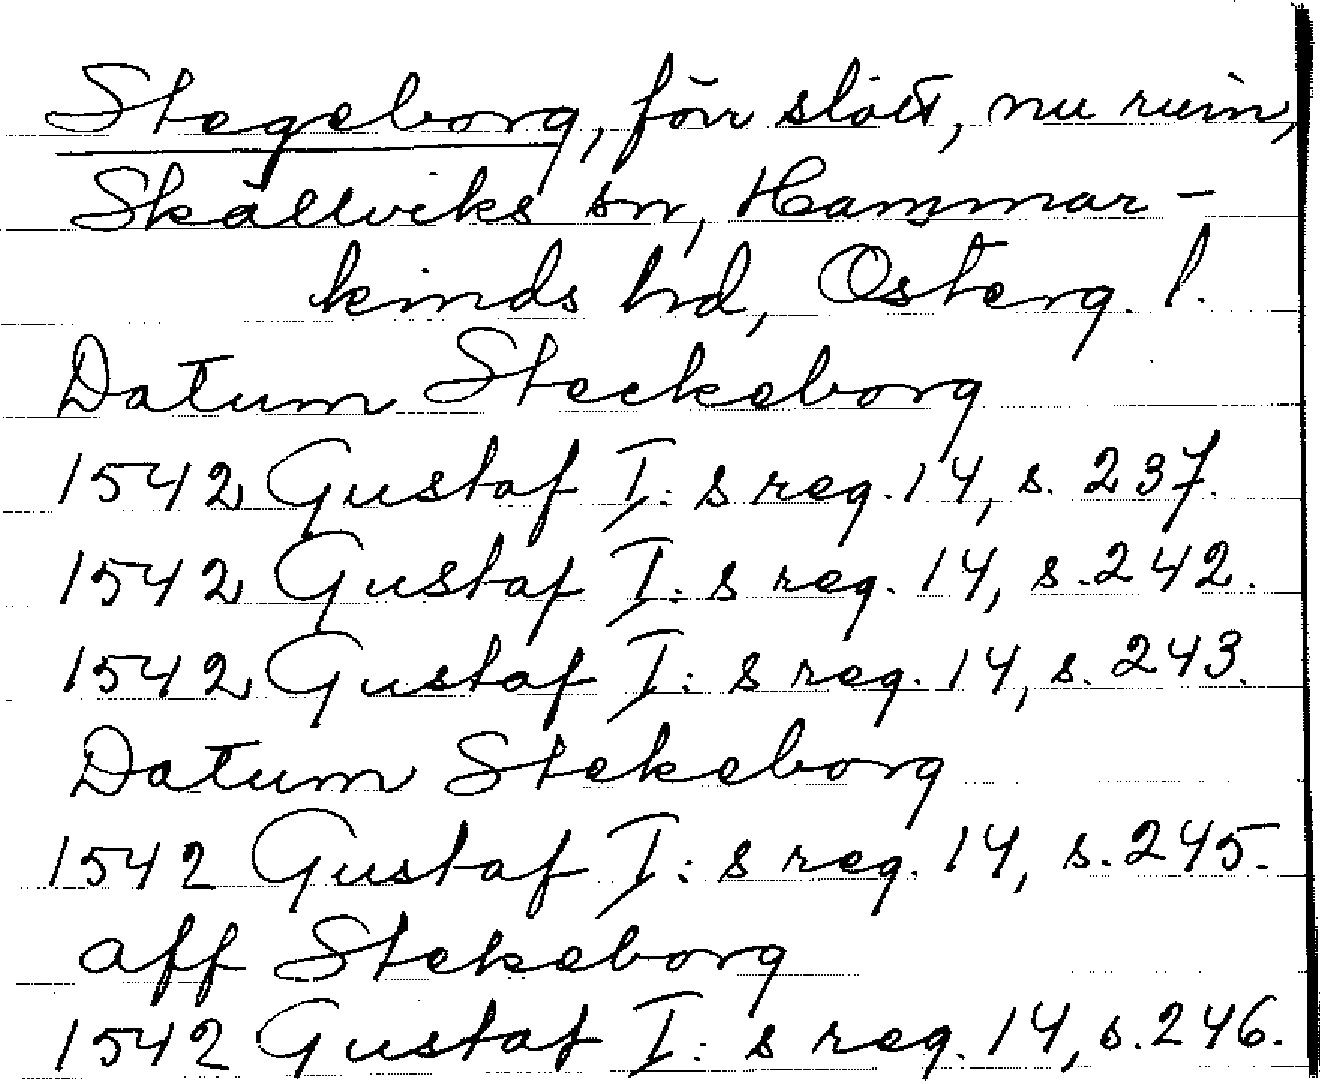 Stegeborg, förr slott, nu ruin,
Skällviks sn, Hammar-
kinds hd, Österg. l.
Datum Steckeborg
1542 Gustaf I:s reg. 14, s. 237.
1542 Gustaf I:s reg. 14, s. 242.
1542 Gustaf I:s reg. 14, s. 243.
Datum Stekeborg
1542 Gustaf I:s reg. 14, s. 245.
aff Stekeborg
1542 Gustaf I:s reg. 14, s. 246.